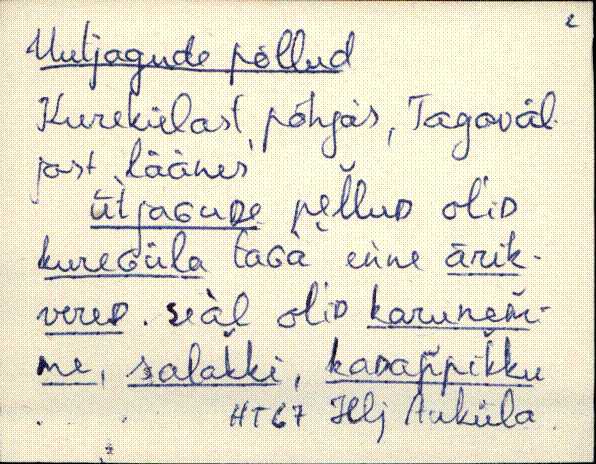 2
Uutjagude põllud
Kurekülast põhjas, Tagaväl-
jast läänes
ūt̀jaGuDe pel̆lùD ol'iD
kureGüla taGà enne ärik-
vereD. seàl ol'iD karunem̆-
me, salak̆ki, kaDap̆pik̆ku
HT67 Hlj Auküla